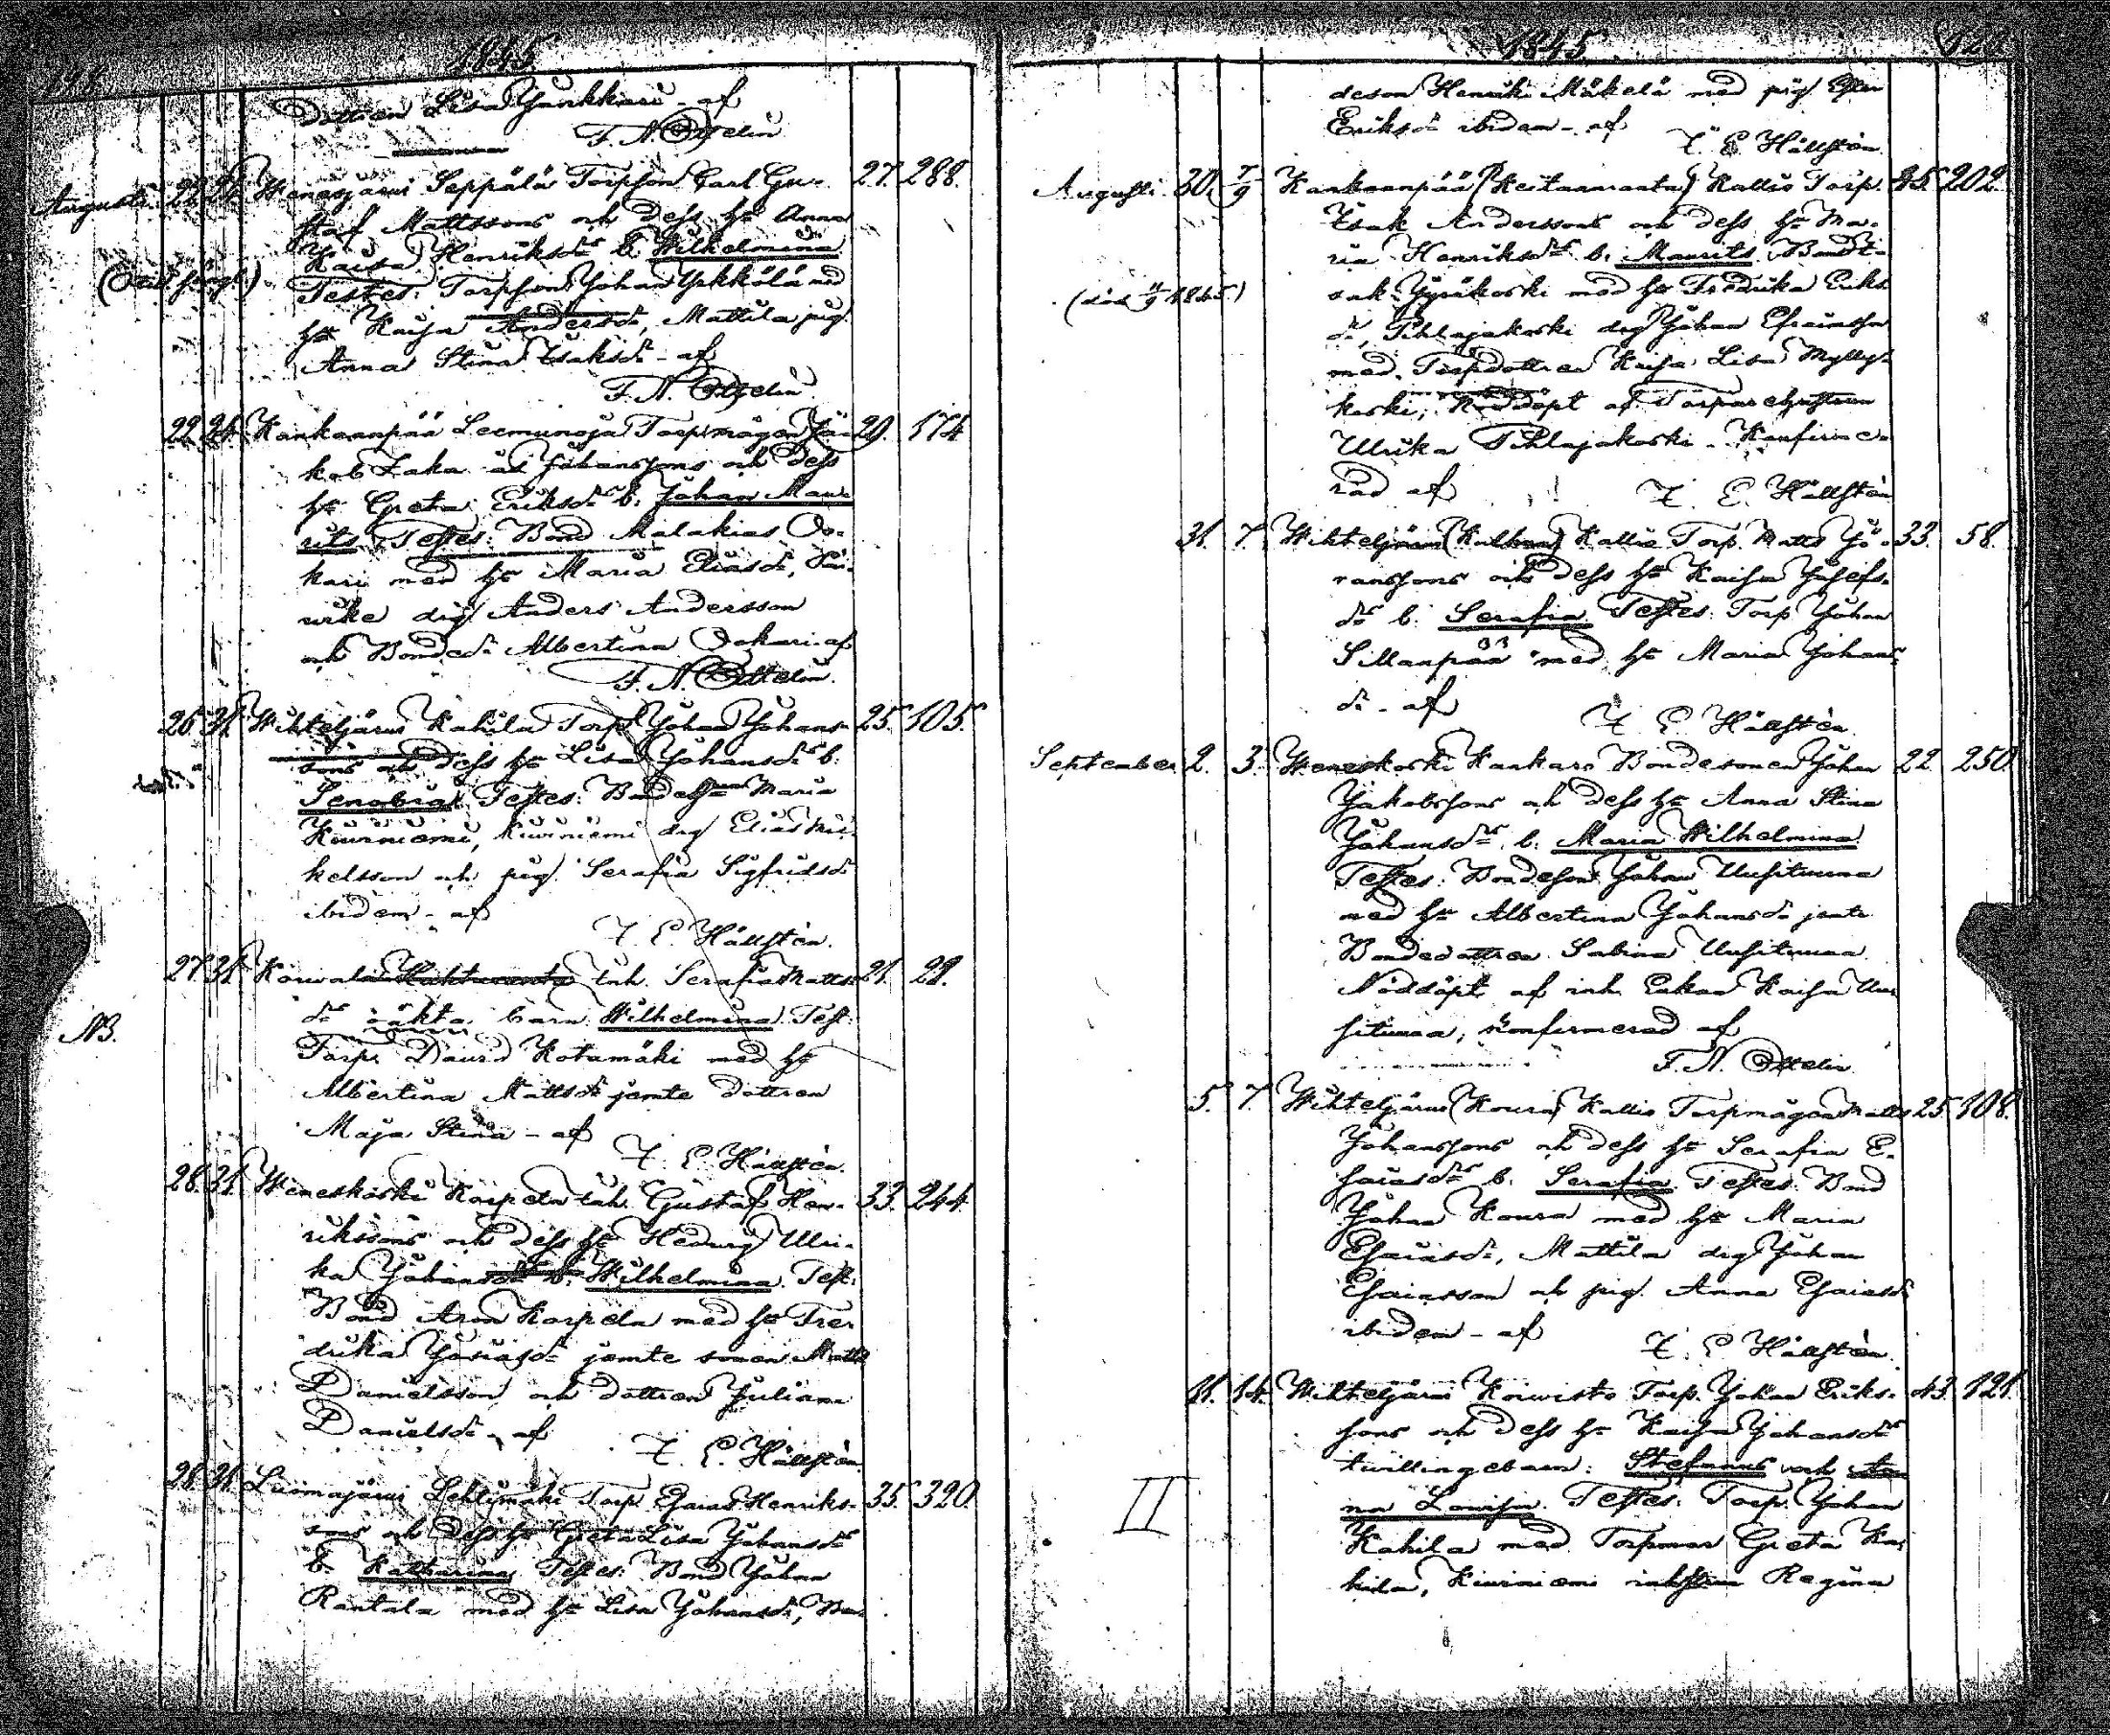 1845
dottren Lisa Jankkari - af
F. N. Ottelin
Augusti 22. 24. Wenesjärvi Seppälä Torpson Carl Gu- 27. 288.
staf Mattssons och dess h. Anna
Kaisa Henriksdr b. Wilhelmina
Testes: Torpson Johan Ykkölä med
h. Kaisa Andersdr, Mattila pig.
Anna Stina Isaksdr - af
F. N. Ottelin
22. 24. Kankaanpää Leemunoja Torpmågen Ja- 29. 174
kob Johanssons och dess
h. Greta Eriksdr b. Johan Mau-
rits Testes: Bond Malakias Oo-
kari med h. Maria Eliasdr,
drg Anders Andersson
och Bonded. Albertina Ookari af
F. N. Ottelin
26 31. Wihteljärvi Kahila Torp. Johan Johans- 25. 105.
sons och dess h. Lisa Johansdr b.
Senobia Testes: Maria
Kiviniemi, Kiviniemi drg Elias Mi-
kelsson och pig. Serafia Sigfridsdr
ibidem - af
F. E. Hällstén.
27 31. inh. Serafia Matts- 21. 29.
dr oäkta barn Wilhelmina Test:
NB.
Torp. David Kotamäki med h.
Albertina Mattsdr jemte dottren
Maja Stina - af
F. E. Hällstén.
28. 31. Weneskoski Karpela inh. Gustaf Hen- 33. 244
rikssons och dess h. Hedvig Ulri-
ka Johansdr b. Wilhelmina. Test:
Bond Aron Karpela med h. Fre-
drika Josiasdr jemte sonen Matts
Danielsson och dottren Juliana
Danielsdr - af
F. E. Hällstén
28 31. Luomajärvi Lehtimäki Torp. Esaias Henriks- 35. 320.
sons och dess h. Greta Lisa Johansdr
b. Katharina Testes: Bond Johan
Rantala med h. Lisa Johansdr,
1845.
deson Henrik Mäkelä med pig.
Eriksdr ibidem - af
F. E. Hällstén.
Augusti 30. 7/9 Kankaanpää (Keitaanranta) Kallio Torp. 202.
Isak Anderssons och dess h. Ma-
ria Henriksdr b. Maurits
(död 1845.)
Jyräkoski med h. Fredrika Eriks
dr, Pihlajakoski drg Johan Efraimson
med Torpdottren Kaisa Lisa Mylly-
koski, Nöddöpt af
Ulrika Pihlajakoski. Konfirme-
rad af
F. E. Hällstén
31. 7. Wihteljärvi Kallio Torp. Matts Jö- 33. 58.
ranssons och dess h. Kaisa Josefs-
dr b. Serafia Testes: Torp. Johan
Sillanpää med h. Maria Johans-
dr - af
F. E. Hällstén.
September 2. 3. Weneskoski Kankare Bondesonen Johan 22 250.
Jakobssons och dess h. Anna Stina
Johansdr b. Maria Wilhelmina
Testes: Bondeson Johan Uusituma
med h. Albertina Johansdr jemte
Bondedottren Sabina Uusituma
Nöddöpt af inh. Enkan Kaisa Uu-
situma, konfirmerad af
F. N. Ottelin.
5. 7. Wihteljärvi (Koura) Kallio Torpmågen Matts 25. 108.
Johanssons och dess h. Serafia E-
saiasdr b. Serafia Testes: Bond
Johan Koura med h. Maria
Esaiasdr, Mattila drg Johan
Esaiasson och pig. Anna Esaiasdr
ibidem - af
F. E. Hällstén.
11. 14. Wihteljärvi Koivisto Torp. Johan Eriks- 43. 121.
sons och dess h. Kaisa Johansdr
tvillingebarn: Stefanus och An-
na Lovisa. Testes: Torp. Johan
II
Kahila med Greta Ka-
hila, Kiviniemi Regina